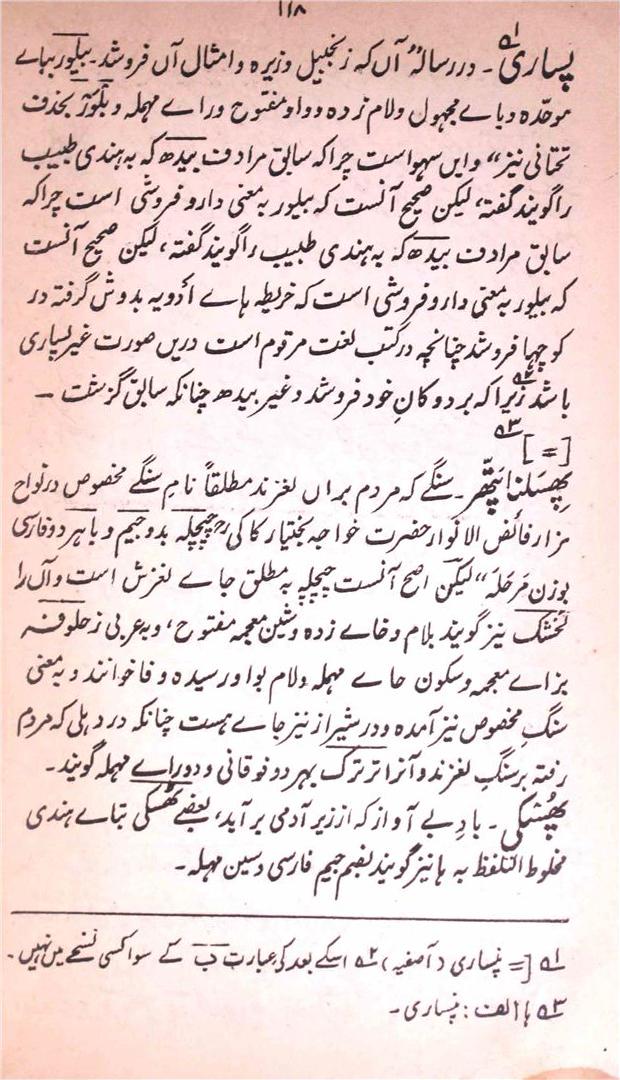 ۱۱۸
پساری۱؎۔ در رسالہ آں کہ زنجبیل و زیرہ و امثال آں فروشد۔ بیلور بباے
موحّدہ و یاے مجہول و لام زدہ و واو مفتوح و راے مہملہ و بلور بحذف
تحتانی نیز“ و ایں سہو است چرا کہ سابق مرادف بیدھ کہ بہ ہندی طبیب
را گویند گفتہ، لیکن صحیح آنست کہ بیلور بہ معنی دارو فروشی است چرا کہ
سابق مرادف بیدھ کہ بہ ہندی طبیب را گویند گفتہ، لیکن صحیح آنست
کہ بیلور بہ معنی دارو فروشی است کہ خریطہ ہاے ادویہ بدوش گرفتہ در
کوچہا فروشد چنانچہ در کتب لغت مرقوم است دریں صورت غیر پساری
باشد۲؎ زیرا کہ بر دوکانِ خود فروشد و غیر بیدھ چنانکہ سابق گزشت ۔
[=]۳؎
پِھسلنا پتّھر۔ سنگے کہ مردم براں لغزند مطلقاً نامِ سنگے مخصوص در نواح
مزار فائض الانوار حضرت خواجہ بختیار کاکی رح چپچلہ بدو جیم و با ہر دو فارسی
بوزن مَرحَلَہ“ لیکن اصح آنست چپچلہ بہ مطلق جاے لغزش است و آں را
لخشک نیز گویند بلام و خاے زدہ و شین معجمہ مفتوح، و بہ عربی زحلوفہ
بزاے معجمہ و سکون حاے مہملہ و لام بواو رسیدہ و فا خوانند و بہ معنی
سنگِ مخصوص نیز آمدہ و در شیراز نیز جاے ہست چنانکہ در دہلی کہ مردم
رفتہ بر سنگ لغزند و آنرا ترترک بہر دو فوقانی و دو راے مہملہ گویند۔
پُھسکی ۔ بادِ بے آواز کہ از زیر آدمی بر آید، بعضے ٹھسکی بتاے ہندی
مخلوط التلفظ بہ ہا نیز گویند بضم جیم فارسی و سین مہملہ ۔
۱؎ [= پنساری (آصفیہ) ۲؎ اسکے بعد کی عبارت ب کے سوا کسی نسخے میں نہیں۔
۳؎ ہا الف : پنساری ۔